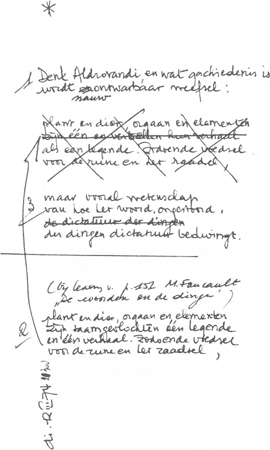 *
1 Denk Aldrovandi en wat geschiedenis is
wordt onontwarbaar weefsel:
nauw
plant en dier, orgaan en elementen
zijn één en vertellen hun verhaal
als een legende. Zodoende voedsel
voor de ruïne en het raadsel,
3 maar vooral wetenschap
van hoe het woord, ongestoord,
de dictatuur der dingen
der dingen dictatuur bedwingt.
(bij lezen v. p. M. Foucault
"De woorden en de dingen")
2 plant en dier, orgaan en elementen
zijn saamgevlochten één legende
en één verhaal. Zodoende voedsel
voor de ruïne en het raadsel,